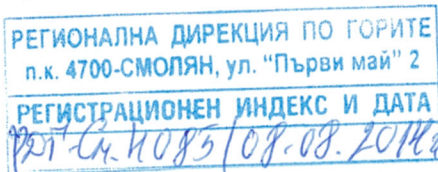 РЕГИОНАЛНА ДИРЕКЦИЯ ПО ГОРИТЕ
п.к. 4700-СМОЛЯН, ул. "Първи май" 2
РЕГИСТРАЦИОНЕН ИНДЕКС И ДАТА
08.08.2014